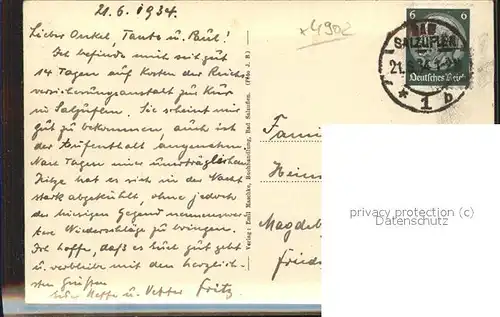 21.6.1934.
x4902
Lieber Onkel, Tante u. Paul!
Ich befinde mich seit gut
14 Tagen auf Kosten der Reichs
versicherungsanstalt zur Kur
in Salzuflen. Sie scheint mir
gut zu bekommen, auch ist
der Aufenthalt angenehm.
Nach Tagen mit unerträglicher
Hitze hat es sich in der Nacht
stark abgekühlt, ohne jedoch
der hiesigen Gegend nennenswer-
te Niederschläge zu bringen.
Ich hoffe, daß es Euch gut geht
u. verbleibe mit den herzlich-
sten Grüßen
Neffe u. Vetter Fritz
Verlag: Emil Maschke, Buchhandlung, Bad Salzuflen. (Foto J. B.)
6 6
BAD
SALZUFLEN
21.
Deutsches Reich
* 1 b
Fami
Hein
Magdeb
Fried
privacy protection (c)
Datenschutz